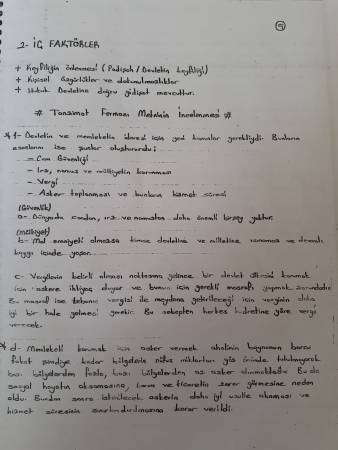 5
2- İÇ FAKTÖRLER
+ Keyfiliğin önlenmesi (Padişah / Devletin keyfiliği)
+ Kişisel özgürlükler ve dokunulmazlıklar
+ Hukuk Devletine doğru gidişat mevcuttur.
# Tanzimat Fermanı Metninin İncelenmesi #
* 1- Devletin ve memleketin idaresi için yeni kanunlar gereklidir. Bunların
esaslarını ise şunlar oluşturur:
- Can Güvenliği
- Irz, namus ve milliyetin korunması
- Vergi
- Asker toplanması ve bunların hizmet süresi
(Güvenlik)
a- Dünyada candan, ırz ve namustan daha önemli birşey yoktur.
(Mülkiyet)
b- Mal emniyeti olmazsa kimse devletine ve milletine ısınamaz ve devamlı
kaygı içinde yaşar.
c- Vergilerin belirli olması noktasına gelince bir devlet ülkesini korumak
için askere ihtiyaç duyar ve bunun için gerekli masrafı yapmak zorundadır
Bu masraf ise tebanın vergisi ile meydana getirileceği için verginin daha
iyi bir hale gelmesi gerekir. Bu sebepten herkes kudretine göre vergi
verecek.
* d- Memleketi korumak için asker vermek ahalinin boynunun borcu
fakat şimdiye kadar bölgelerin nüfus miktarları göz önünde tutulmayarak
bazı bölgelerden fazla, bazı bölgelerden az asker alınmaktadır. Bu da
sosyal hayatın aksamasına, tarım ve ticaretin zarar görmesine neden
oldu. Bundan sonra istenilecek askerin daha iyi usulle alınması ve
hizmet süresinin sınırlandırılmasına karar verildi.